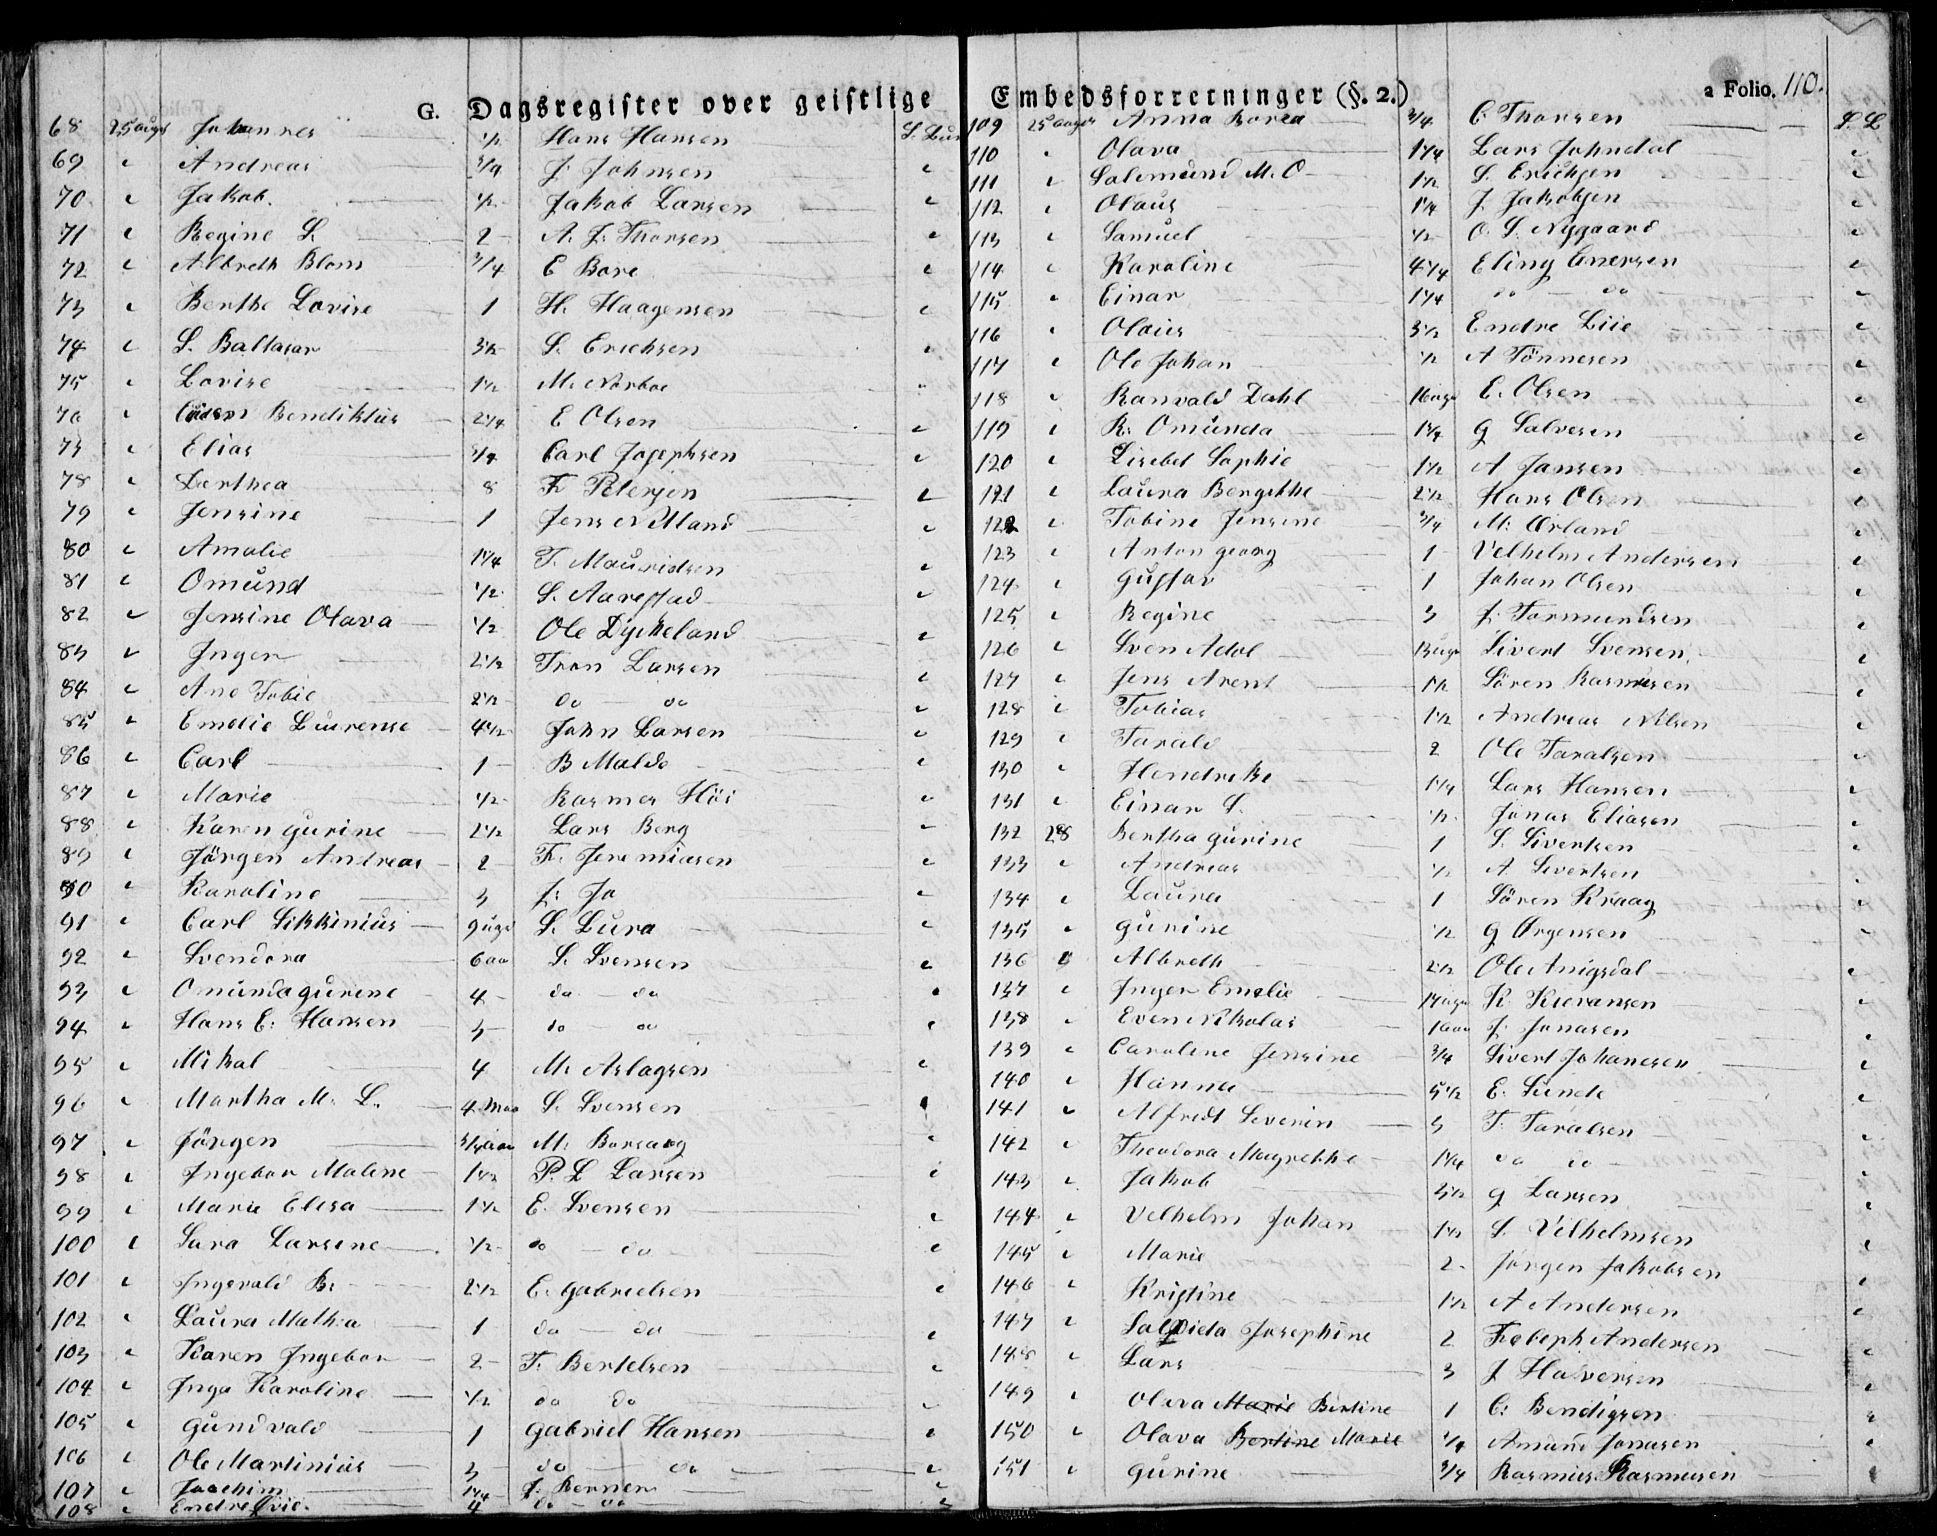 G. Dagsregister over geistlige
68 25 aug Johannes 1/2 Hans Hansen S. Lun
69 Andreas 3/4 J. Johnsen
70 Jakob 1/2 Jakob Larsen
71 Regine S. 2 A. J. Thorsen
72 Albreth Blom 3/4 E Bore
73 Berthe Lovise 1 H. Haagensen
74 S. Baltasar 3 1/2 S. Erichsen
75 Lovise 1 1/2 M. Norboe
76 Bendiktus 2 1/4 E Olsen
77 Elias 3/4 Carl Josephsen
78 Derthea 8 Petersen
79 Jensine 1 Jens Nilland
80 Amalie 1 1/4 T. Mauridsen
81 Omund 1/2 S. Aarestad
82 Jensine Olava 1/2 Ole Dyskeland
83 Inger 2 1/2 Tron Larsen
84 Ane Tobie 2 1/2 do do
85 Emelie Laurense 4 1/2 John Larsen
86 Carl 1 B Malde
87 Marie 1/2 Rasmes Höi
88 Karen Gurine 2 1/2 Lars Berg
89 Jörgen Andreas 2 Jeremiasen
90 Karoline 3 J. Jo
91 Carl Sikkinius 9 uger S. Lura
92 Svendora 6 aa S. Svensen
93 Omunda Gurene 4 do do
94 Hans E. Hansen 3 do do
95 Mikal 4 M. Aslagsen
96 Martha M. L. 4 Maa S. Svensen
97 Jörgen 3/4 aar M. Borsaag
98 Ingebor Malene 1 1/2 P. L Larsen
99 Marie Elisa 1 1/2 E. Svensen
100 Sara Larsine 1/2 do do
101 Ingevald B. 2 1/2 E. Gabrielsen
102 Laura Mathea 1 do do
103 Karen Ingebor 2 T. Bertelsen
104 Inga Karoline 1/2 do do
105 Gundvald 1 Gabriel Hansen
106 Ole Martinius 3 do do
107 Joachim 1 1/4 J. Berner
108 Endre 4 do do
Embedsforretninger (§. 2.) a Folio. 110.
109 25 aug Anna Borea 3/4 C Thorsen S. L
110 Olava 1 1/4 Lars Johndal
111 Salemund M. O 1 1/2 S. Erichsen
112 Olaus 1 1/4 J. Jakobsen
113 Samuel 1/2 O. S. Nygaard
114 Karoline 4 1/4 Eling Enersen
115 Einar 1 1/4 do do
116 Olaus 3 1/2 Endre Liie
117 Ole Johan 1/2 A Tönnesen
118 Ranvald Dahl 16 uge E. Olsen
119 R. Omunda 1 3/4 G Salvesen
120 Lisebet Sophie 1 1/2 A Jansen
121 Laura Bergithe 2 1/2 Hans Olsen
122 Tobine Jensine 3/4 M. Ørland
123 Anton Georg 1 Velhelm Andersen
124 Gustav 1 Johan Olsen
125 Regine 3 J. Tormundsen
126 Sven Adol 13 uge Sivert Svensen
127 Jens Arent 1 1/2 Sören Rasmusen
128 Tobias 1 1/2 Andreas Nilsen
129 Tarald 2 Ole Taralsen
130 Hendreke 1 1/4 Lars Hansen
131 Einar S. 1/2 Jonas Eliasen
132 28 Bertha Gurine 1 S. Sivertsen
133 Andreas 1/2 A. Sivertsen
134 Laura 1 Sören Kraag
135 Gurine 1/2 G Ørgensen
136 Albreth 2 1/2 Ole Anigsdal
137 Inger Emelie 17 uge K. Kieransen
138 Even Nikolai J. Jonasen
139 Caroline Jensine 3/4 Sivert Johanesen
140 Hanna 5 1/2 E. Sunde
141 Alfredt Severin 3 T. Taralsen
142 Theodora Magrethe 1 1/4 do do
143 Jakob 3 1/2 G Larsen
144 Velhelm Johan 1 1/2 S. Velhelmsen
145 Marie 2 Jörgen Jakobsen
146 Kristine 1 1/2 A Andersen
147 Josephine 2 Andersen
148 Lars 3 J Halversen
149 Olava Marie Bertine 1 C. Bendigsen
150 Olava Bertine Marie 1/4 Amund Jonasen
151 Gurine 3/4 Rasmus Rasmusen